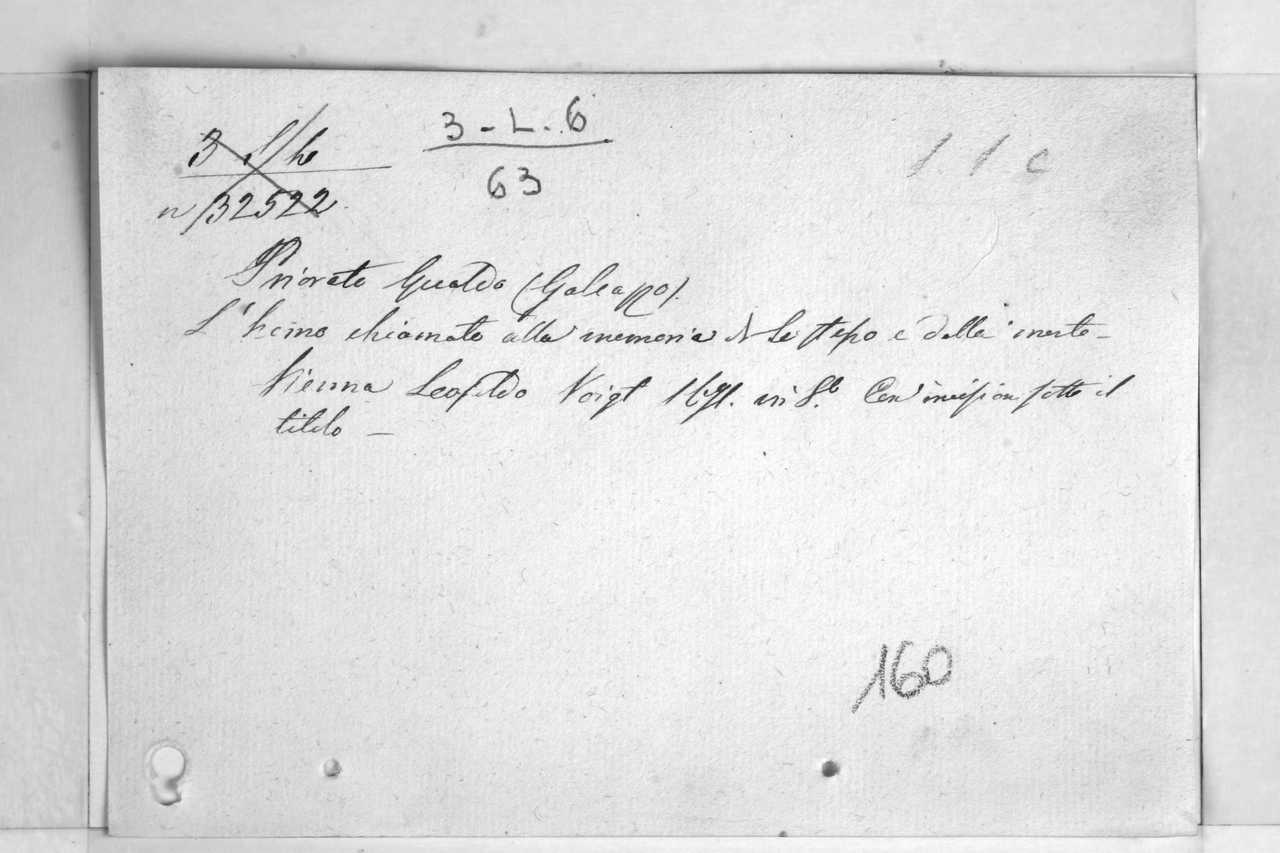 3 - L. 6
63
n 32522
Priorato Gualdo (Galeazzo).
L' huomo chiamato alla memoria di se stesso e della morte -
Vienna Leopoldo Voigt 1671. in 8.º Con incision sotto il
titolo -
160